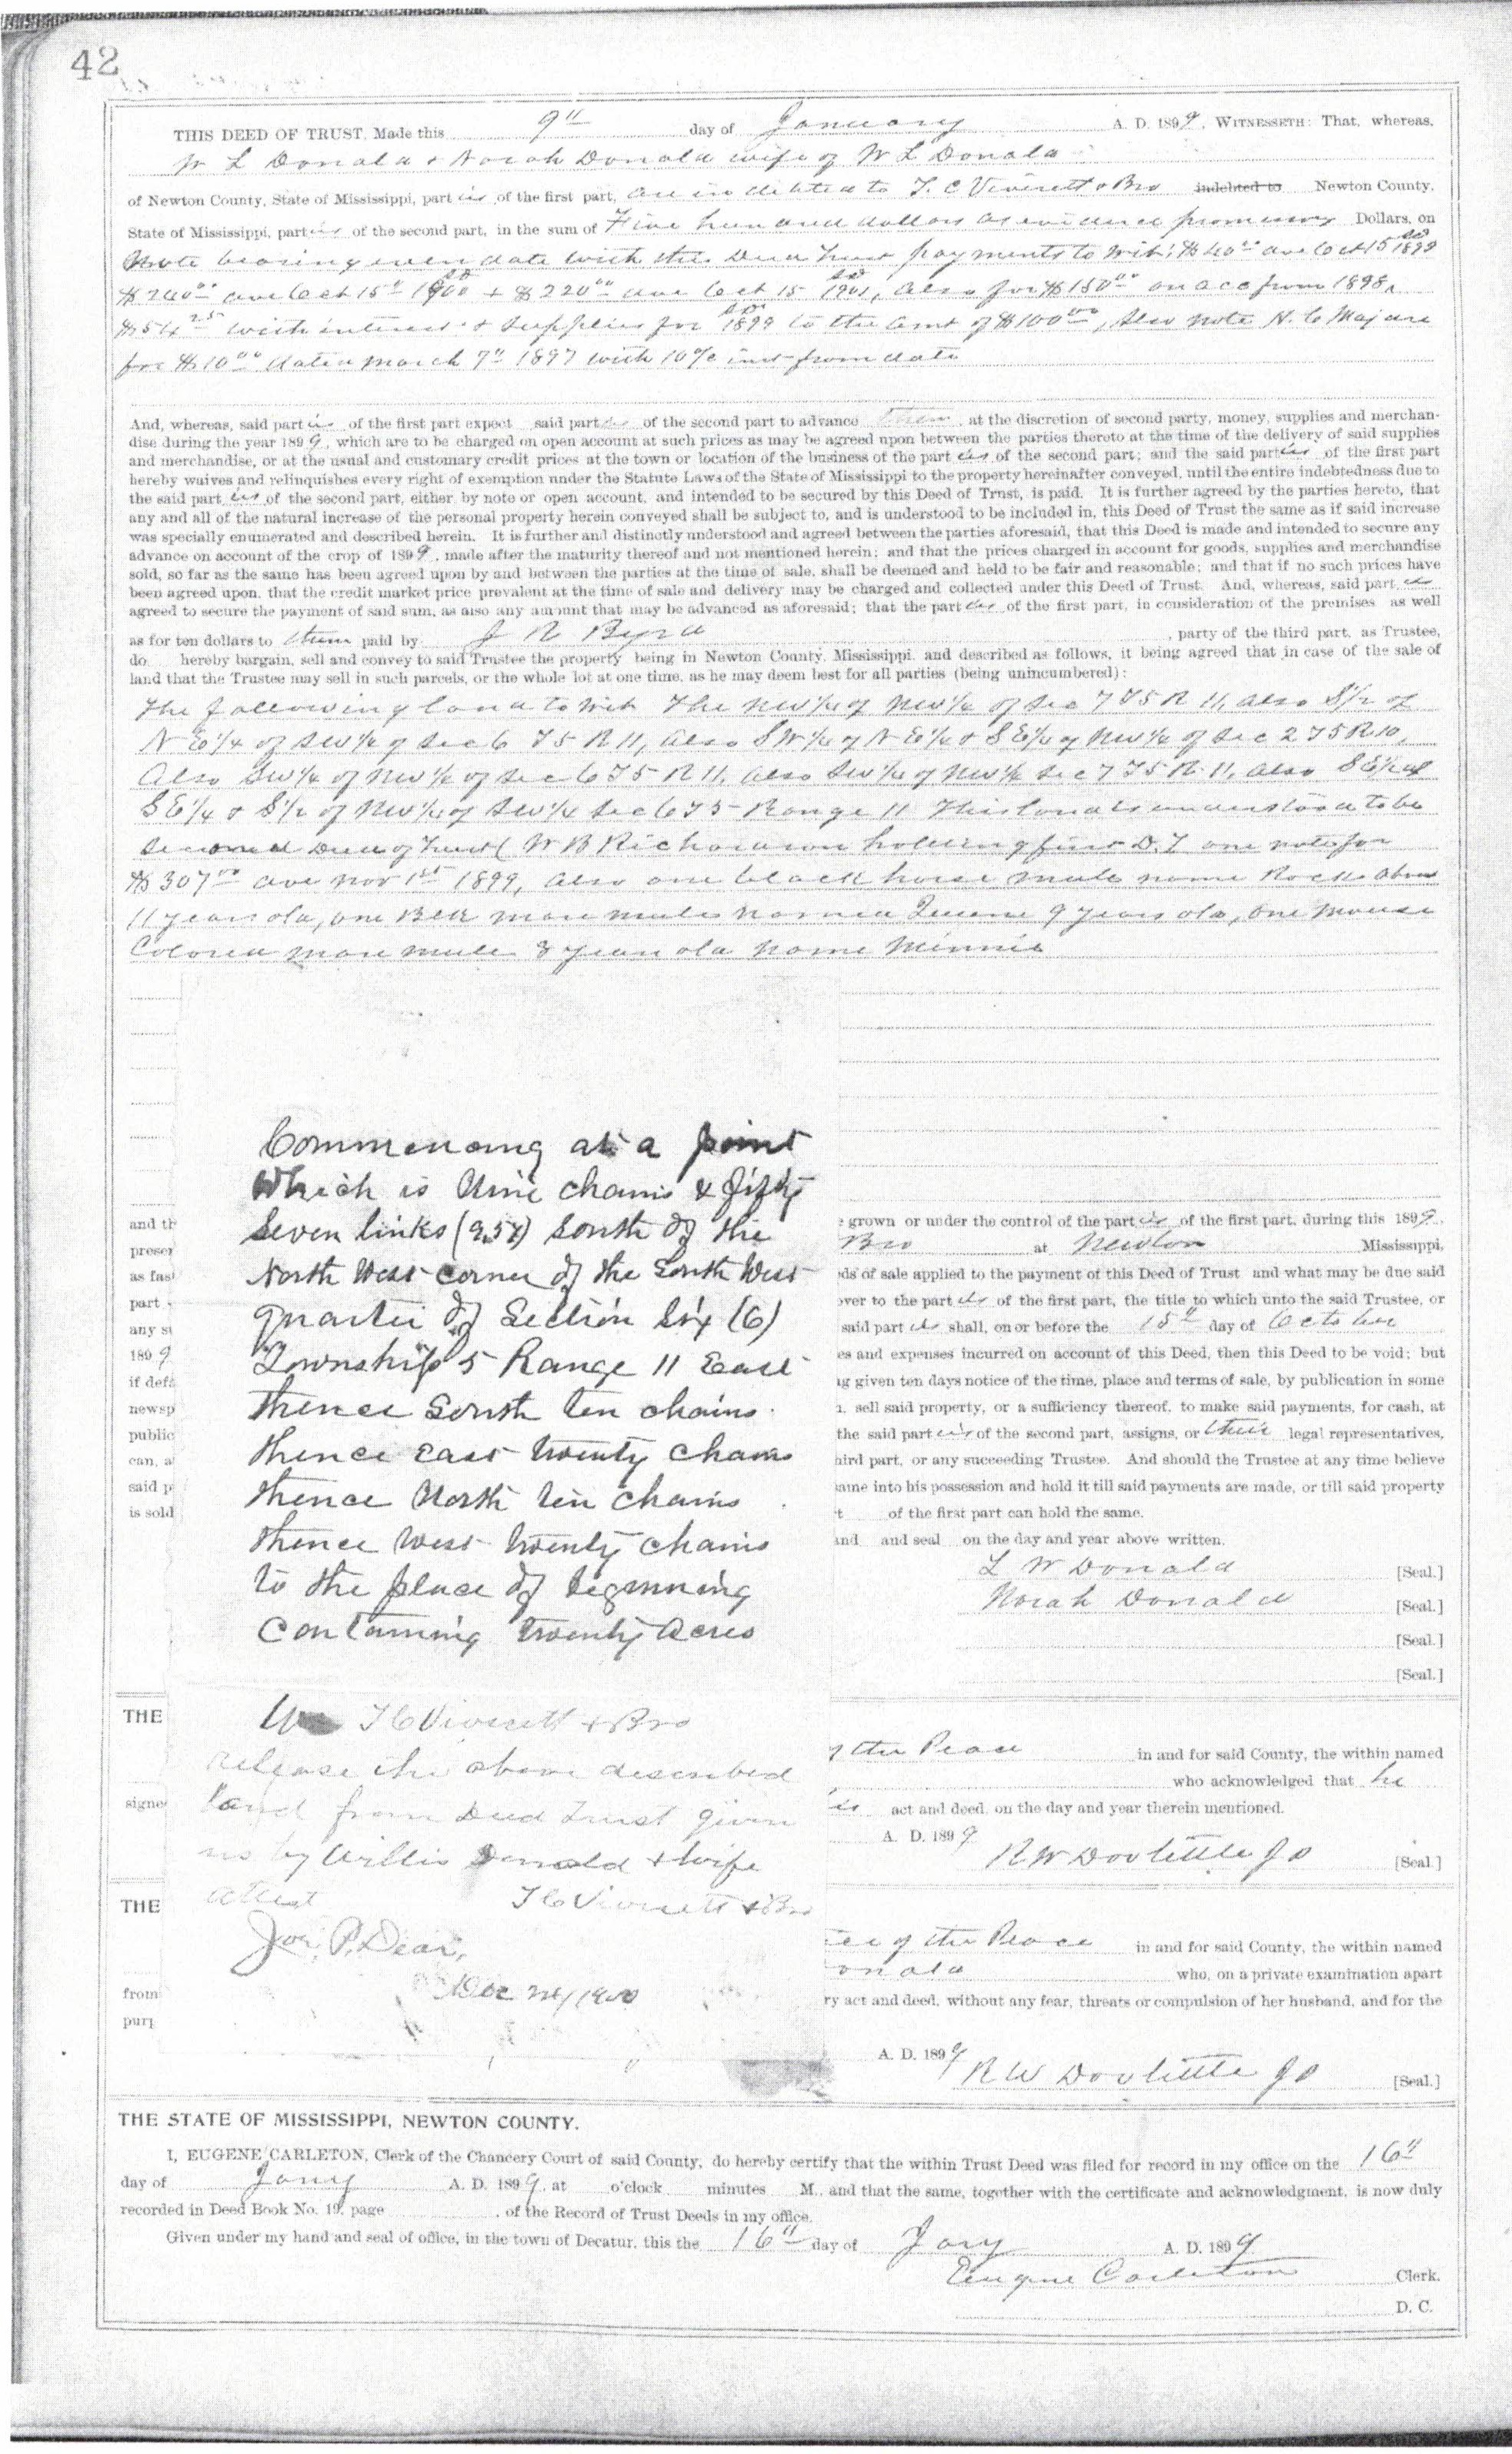 42
THIS DEED OF TRUST, Made this 9" day of January A. D. 1899, WITNESSETH: That, whereas,
W L Donald & Norah Donald wife of W L Donald
of Newton County, State of Mississippi, part ies of the first part, are indebted to T. C Viverett & Bro indebted to Newton County,
State of Mississippi, part ies of the second part, in the sum of Five hundred dollars as evidence promissory Dollars, on
Note bearing even date with this Deed Trust payments to wit: $40 00 due Oct 15 1899
$240 00 due Oct 15" 1900 & $220 00 due Oct 15 1901, also for $150 00 on acc from 1898,
$54 25 with interest & supplies for 1899 to the amt of $100 00, Also note N. C Majure
for $10 00 dated March 7" 1897 with 10% int from date
And, whereas, said part ies of the first part expect said part ies of the second part to advance them, at the discretion of second party, money, supplies and merchan-
dise during the year 1899, which are to be charged on open account at such prices as may be agreed upon between the parties thereto at the time of the delivery of said supplies
and merchandise, or at the usual and customary credit prices at the town or location of the business of the part ies of the second part; and the said part ies of the first part
hereby waives and relinquishes every right of exemption under the Statute Laws of the State of Mississippi to the property hereinafter conveyed, until the entire indebtedness due to
the said part ies of the second part, either by note or open account, and intended to be secured by this Deed of Trust, is paid. It is further agreed by the parties hereto, that
any and all of the natural increase of the personal property herein conveyed shall be subject to, and is understood to be included in, this Deed of Trust the same as if said increase
was specially enumerated and described herein. It is further and distinctly understood and agreed between the parties aforesaid, that this Deed is made and intended to secure any
advance on account of the crop of 1899, made after the maturity thereof and not mentioned herein; and that the prices charged in account for goods, supplies and merchandise
sold, so far as the same has been agreed upon by and between the parties at the time of sale, shall be deemed and held to be fair and reasonable; and that if no such prices have
been agreed upon, that the credit market price prevalent at the time of sale and delivery may be charged and collected under this Deed of Trust. And, whereas, said part ies
agreed to secure the payment of said sum, as also any amount that may be advanced as aforesaid; that the part ies of the first part, in consideration of the premises as well
as for ten dollars to them paid by J R Byrd, party of the third part, as Trustee,
do hereby bargain, sell and convey to said Trustee the property being in Newton County, Mississippi, and described as follows, it being agreed that in case of the sale of
land that the Trustee may sell in such parcels, or the whole lot at one time, as he may deem best for all parties (being unincumbered):
The following land to wit The NW¼ of NW¼ of Sec 7 T5 R 11, also S½ of
N E¼ of SW¼ of Sec 6 T5 R 11, also SW¼ of N E¼ & S E¼ of NW¼ of Sec 2 T5 R 10,
Also SW¼ of NW¼ of Sec 6 T5 R 11, also SW¼ of NW¼ Sec 7 T5 R 11, also S E¼ of
S E¼ & S½ of NW¼ of SW¼ Sec 6 T5 Range 11 This land is understood to be
Second Deed of Trust (W B Richardson holding first D. T one note for
$307 00 due Nov 1st 1899, also one black horse mule name Rock about
11 years old, one mare mule named Queene 9 years old, one mouse
Colored mare mule 8 years old name Minnie
Commencing at a point
Which is Nine chains & fifty
Seven links (9.57) South of the
North West corner of the South West
quarter of Section Six (6)
Township 5 Range 11 East
thence South ten chains
thence east twenty chains
thence North ten chains
thence West twenty chains
to the place of beginning
Containing twenty Acres
We T C Viverett & Bro
release the above described
land from Deed Trust given
us by Willis Donald & Wife
Attest T C Viverett & Bro
Jos. P. Dear,
Dec 24/1900
and th
presen
as fast
part
any s
1899
if defa
newsp
public
can, a
said p
is sold
e grown or under the control of the part ies of the first part, during this 1899,
Bro at Newton Mississippi,
eds of sale applied to the payment of this Deed of Trust and what may be due said
over to the part ies of the first part, the title to which unto the said Trustee, or
said part ies shall, on or before the 15" day of October
es and expenses incurred on account of this Deed, then this Deed to be void; but
ng given ten days notice of the time, place and terms of sale, by publication in some
sell said property, or a sufficiency thereof, to make said payments, for cash, at
the said part ies of the second part, assigns, or their legal representatives,
hird part, or any succeeding Trustee. And should the Trustee at any time believe
same into his possession and hold it till said payments are made, or till said property
t of the first part can hold the same.
and and seal on the day and year above written.
L W Donald [Seal.]
Norah Donald [Seal.]
[Seal.]
[Seal.]
THE
of the Peace in and for said County, the within named
who acknowledged that he
signed
act and deed, on the day and year therein mentioned.
A. D. 1899
R W Doolittle J P [Seal.]
THE
ice of the Peace in and for said County, the within named
onald who, on a private examination apart
from
ry act and deed, without any fear, threats or compulsion of her husband, and for the
purp
A. D. 1899
R W Doolittle J P [Seal.]
THE STATE OF MISSISSIPPI, NEWTON COUNTY.
I, EUGENE CARLETON, Clerk of the Chancery Court of said County, do hereby certify that the within Trust Deed was filed for record in my office on the 16"
day of Jany A. D. 1899, at o'clock minutes M., and that the same, together with the certificate and acknowledgment, is now duly
recorded in Deed Book No. 19, page , of the Record of Trust Deeds in my office.
Given under my hand and seal of office, in the town of Decatur, this the 16" day of Jany A. D. 1899
Eugene Carleton Clerk.
D. C.